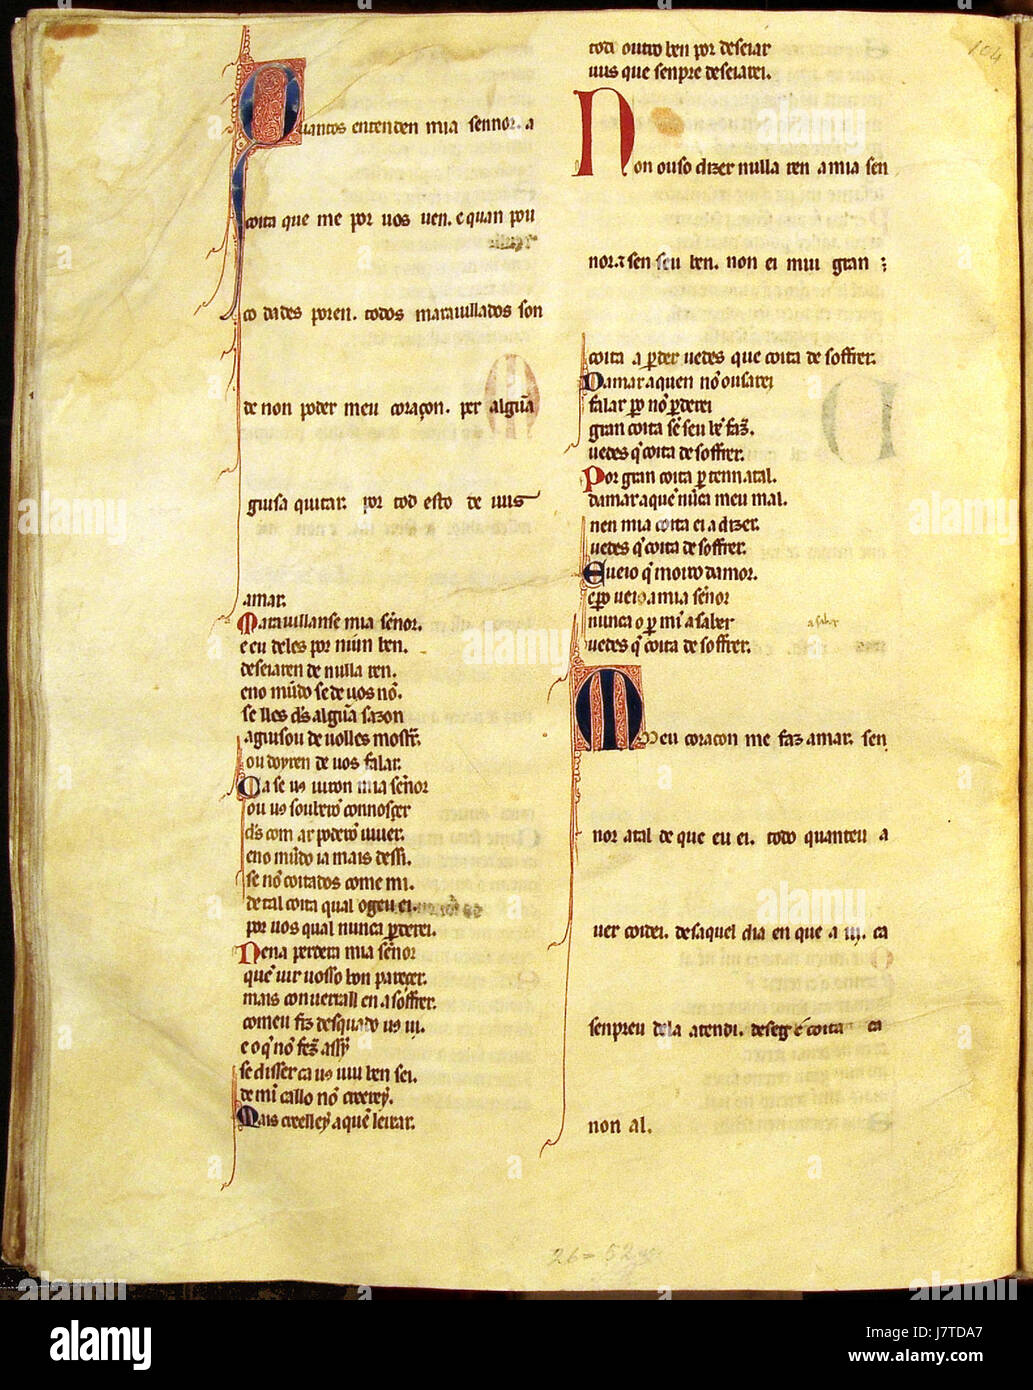 Quantos entenden mia sennor. a
coita que me por uos uen. e quan pou
co dades poren. todos marauillados son
de non poder meu coraçon. per algũa
guisa quitar. por tod esto de uus
amar.
Marauillanse mia señor.
e eu deles por niun ben.
deseiaren de nulla ren.
eno mũdo se de uos nõ.
se lles d's algũa sazon
aguisou de uolles mostr̃.
ou doyren de uos falar.
Ca se us uiron mia señor
ou us souberõ connosçer
d's com ar poderõ uiuer.
eno mũdo ia mais dessi.
se nõ coitados come mi.
de tal coita qual ogeu ei.
por uos qual nunca ꝑderei.
Nena perdera mia señor
quẽ uir uosso bon pareçer.
mais conuerrall en a soffrer.
comeu fiz des quãdo us ui.
e o q̃ nõ fez assy
se disser ca us uiu ben sei.
de mĩ callo nõ creerey.
Mais creelley a quẽ leixar.
tod outro ben por deseiar
uus que senpre deseiarei.
104
Non ouso dizer nulla ren a mia sen
nor. τ sen seu ben. non ei mui gran
coita a ꝑder uedes que coita de soffrer.
Damar a quen nõ ousarei
falar ꝑo nõ ꝑderei
gran coita sẽ seu bẽ faz̃.
uedes q̃ coita de soffrer.
Por gran coita ꝑ tenn atal.
damar a quẽ nũca meu mal.
nen mia coita ei a dizer.
uedes q̃ coita de soffrer.
E ueio q̃ moiro damor.
e ꝑo ueio a mia señor
nunca o ꝑ mĩ a saber
a saber
uedes q̃ coita de soffrer.
Meu coraçon me faz amar. sen
nor atal de que eu ei. todo quanteu a
uer coidei. desaquel dia en que a ui. ca
senpreu dela atendi. deseg̃ e coita ca
non al.
26 = 52
alamy
Image ID: J7TDA7
www.alamy.com